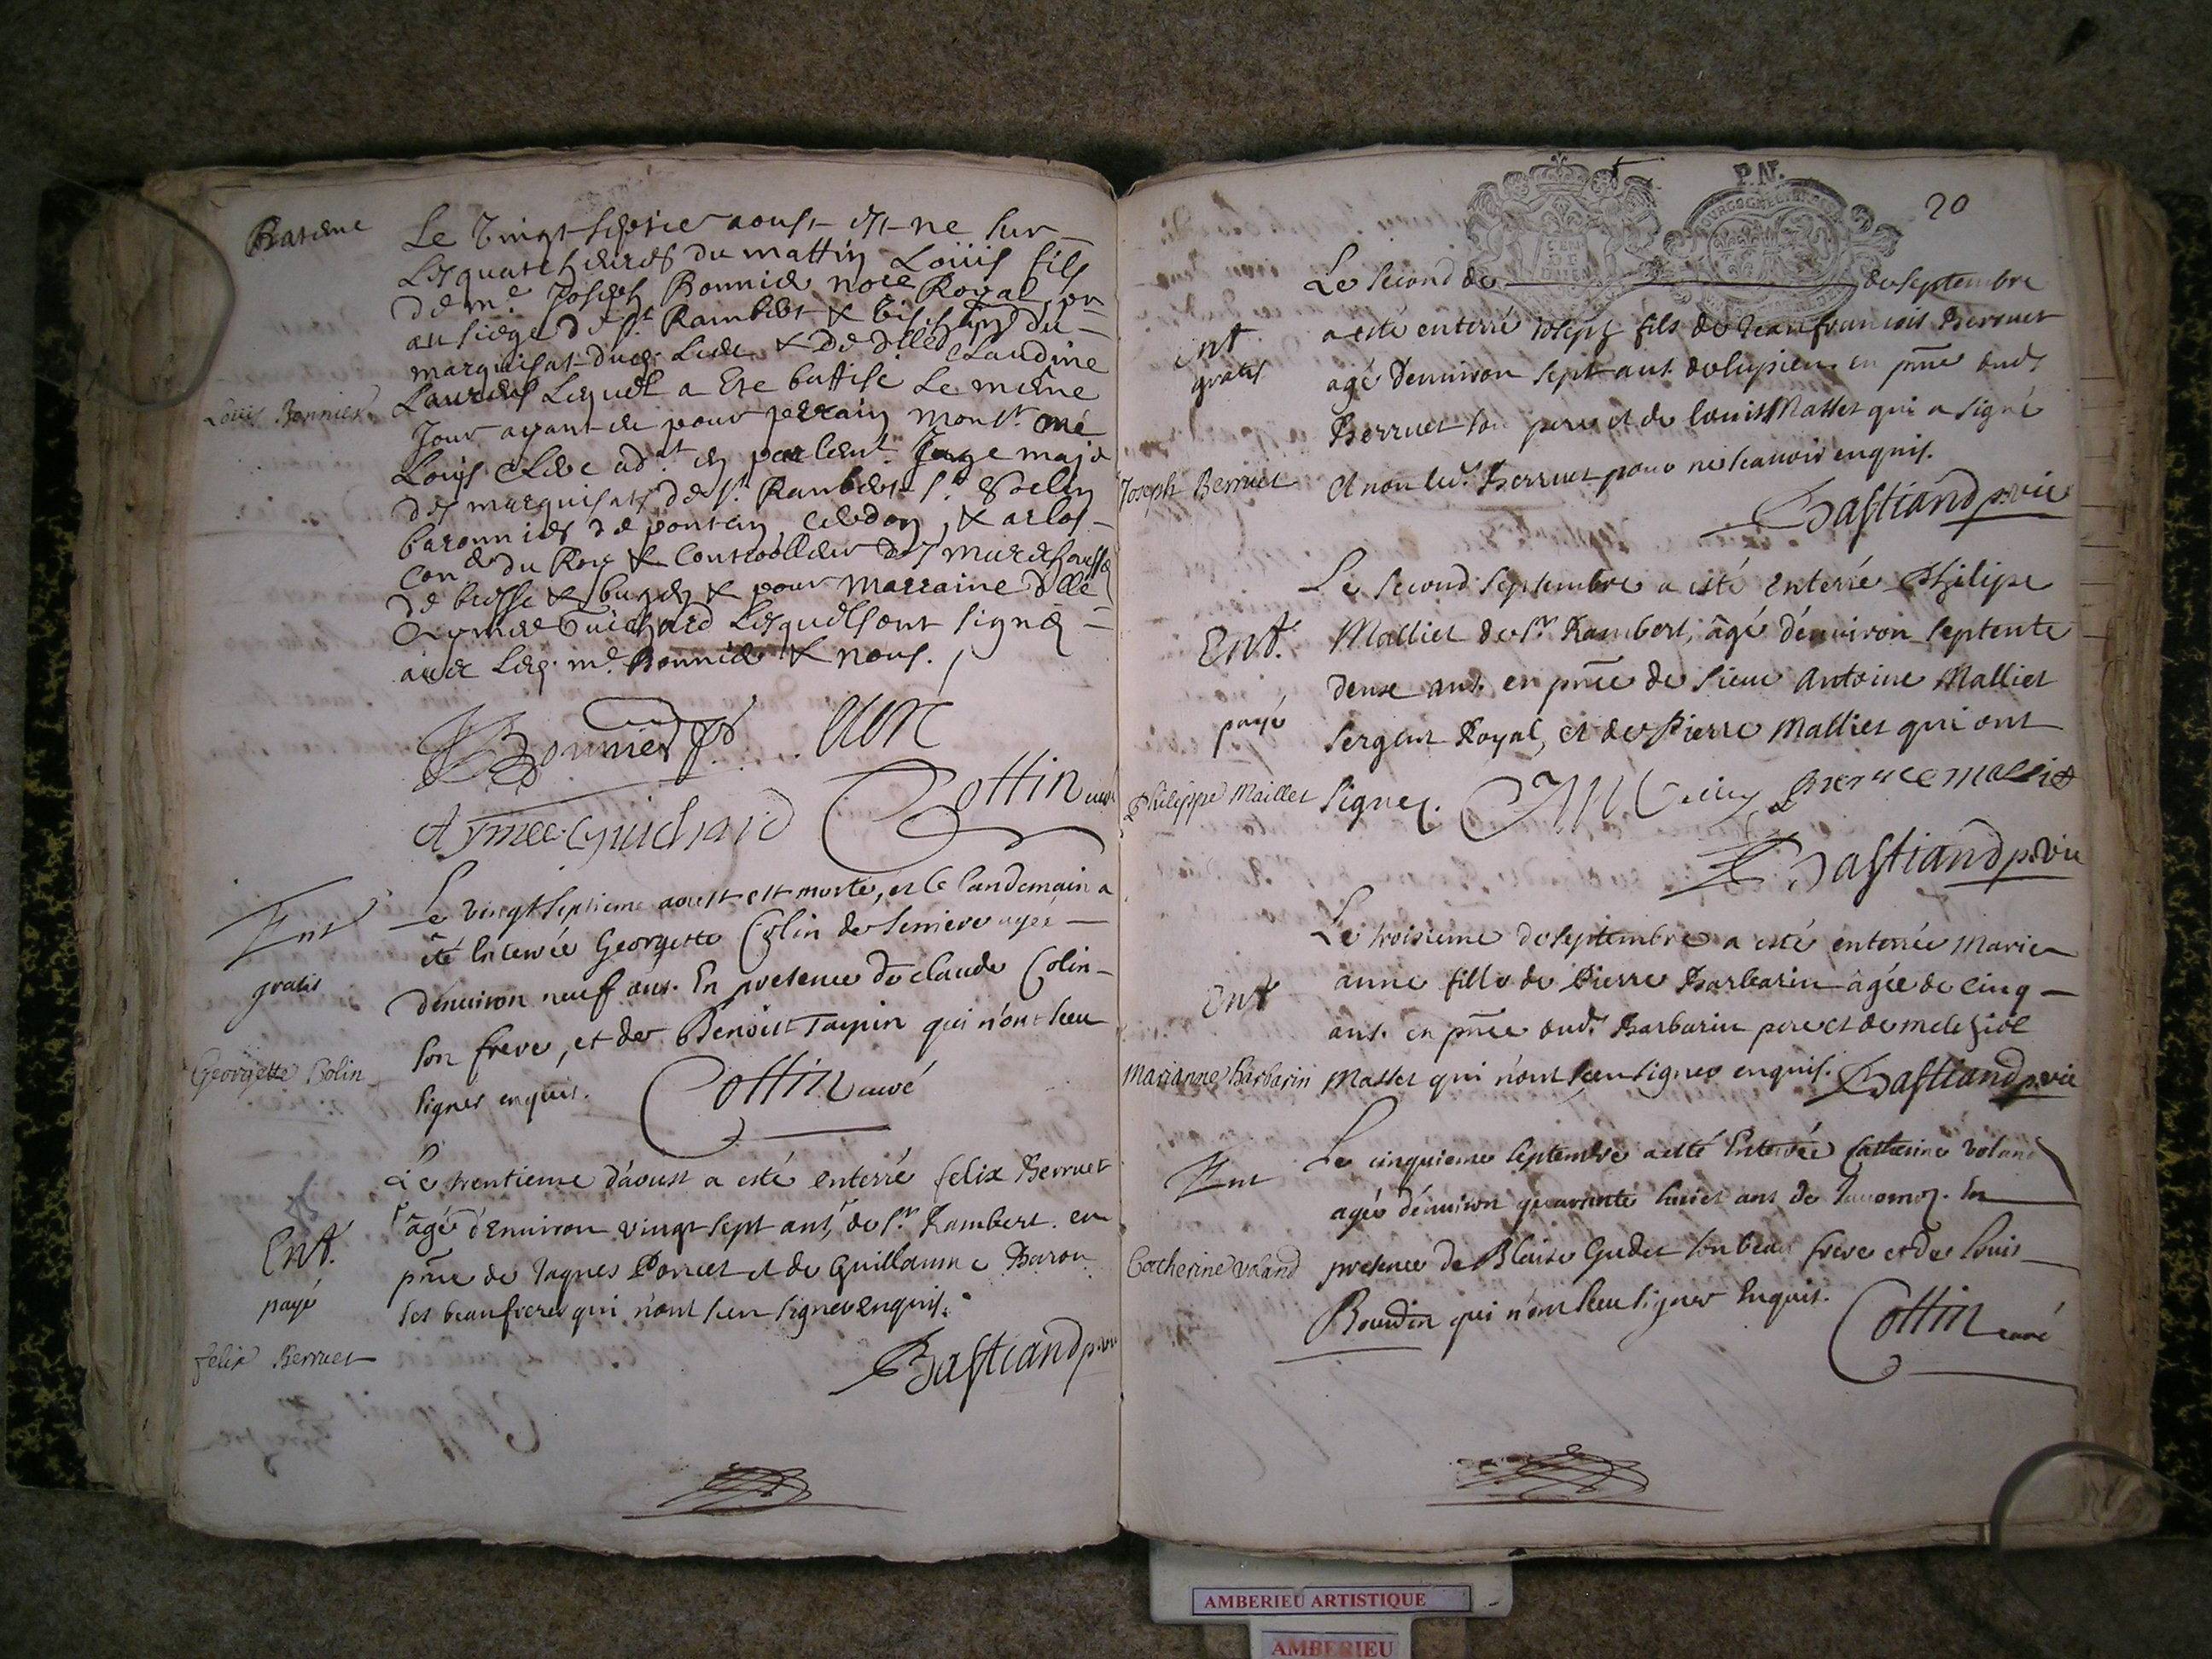 Bateme
Le Vingt septie aoust est ne sur
Les quatre heures du mattin Loüis fils
de me Joseph Bonnier nore Royal
au siege de st Rambert &
marquisat dud. Lieu & de dlle Claudine
Lequel a Ete battise Le meme
Louis Bonnier
Jour ayant eu pour perrain Monsr me
Louis adt en parlemt Juge maje
des marquisats de st Rambert st
baronnies de poncin, cerdon, &
Conder du Roy & Controolleur des marechaussé
de bresse & bugey & pour Marraine dlle
Guichard Lesquels ont signe
avec Led. me Bonnier & nous.
Bonnier
Aymee Guichard Cottin curé
Ent
gratis
Georgette Colin
Le vingt septieme aoust est morte, et le landemain a
été enterrée Georgette Colin de agée
d'enuiron neuf ans. En presence de claude Colin
son frere, et de Benoist Tarpin qui n'ont sceu
signer enquis. Cottin curé
Ent.
payé
felix Berruet
Le trentieme d'aoust a esté enterré felix Berruet
âgé d'Enuiron vingt sept ans, de st Rambert. en
pnce de Jaques Poncet et de Guillaume Baron
ses beaufreres qui n'ont sceu signer enquis.
Bastiand p. vic
P.N.
20
Ent
gratis
Joseph Berruet
Le second de de septembre
a esté enterré Joseph fils de Jean francois Berruet
agé d'enuiron sept ans en pnce dud.
Berruet son pere et de louis Masset qui a signé
et non led. Berruet pour ne scauoir enquis.
Bastiand p. vic
Ent.
payé
Philippe Maillet
Le second septembre a esté enterré Philipe
Malliet de st Rambert, âgé d'enuiron septente
deux ans. en pnce de sieur Antoine Malliet
sergent Royal, et de Pierre Malliet qui ont
signez. Pierre malliet
Bastiand p. vic
Ent
Marianne Barbarin
Le troisieme de septembre a esté enterrée Marie
anne fille de Pierre Barbarin âgée de cinq
ans. en pnce dud. Barbarin pere et de
Masset qui n'ont sceu signer enquis. Bastiand p. vic
Ent
Catherine voland
Le cinquieme septembre a esté Enterrée Catherine voland
agée d'enuiron quarante huict ans de En
presence de Blaise Gudet son beau frere et de Louis
Bourdin qui n'ont sceu signer Enquis.
Cottin curé
AMBERIEU ARTISTIQUE
AMBERIEU